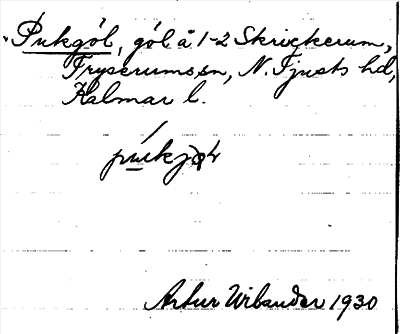 Pukgöl, göl å 1-2 Skrickerum,
Tryserums sn, N. Tjusts hd,
Kalmar l.
Artur Urbander 1930